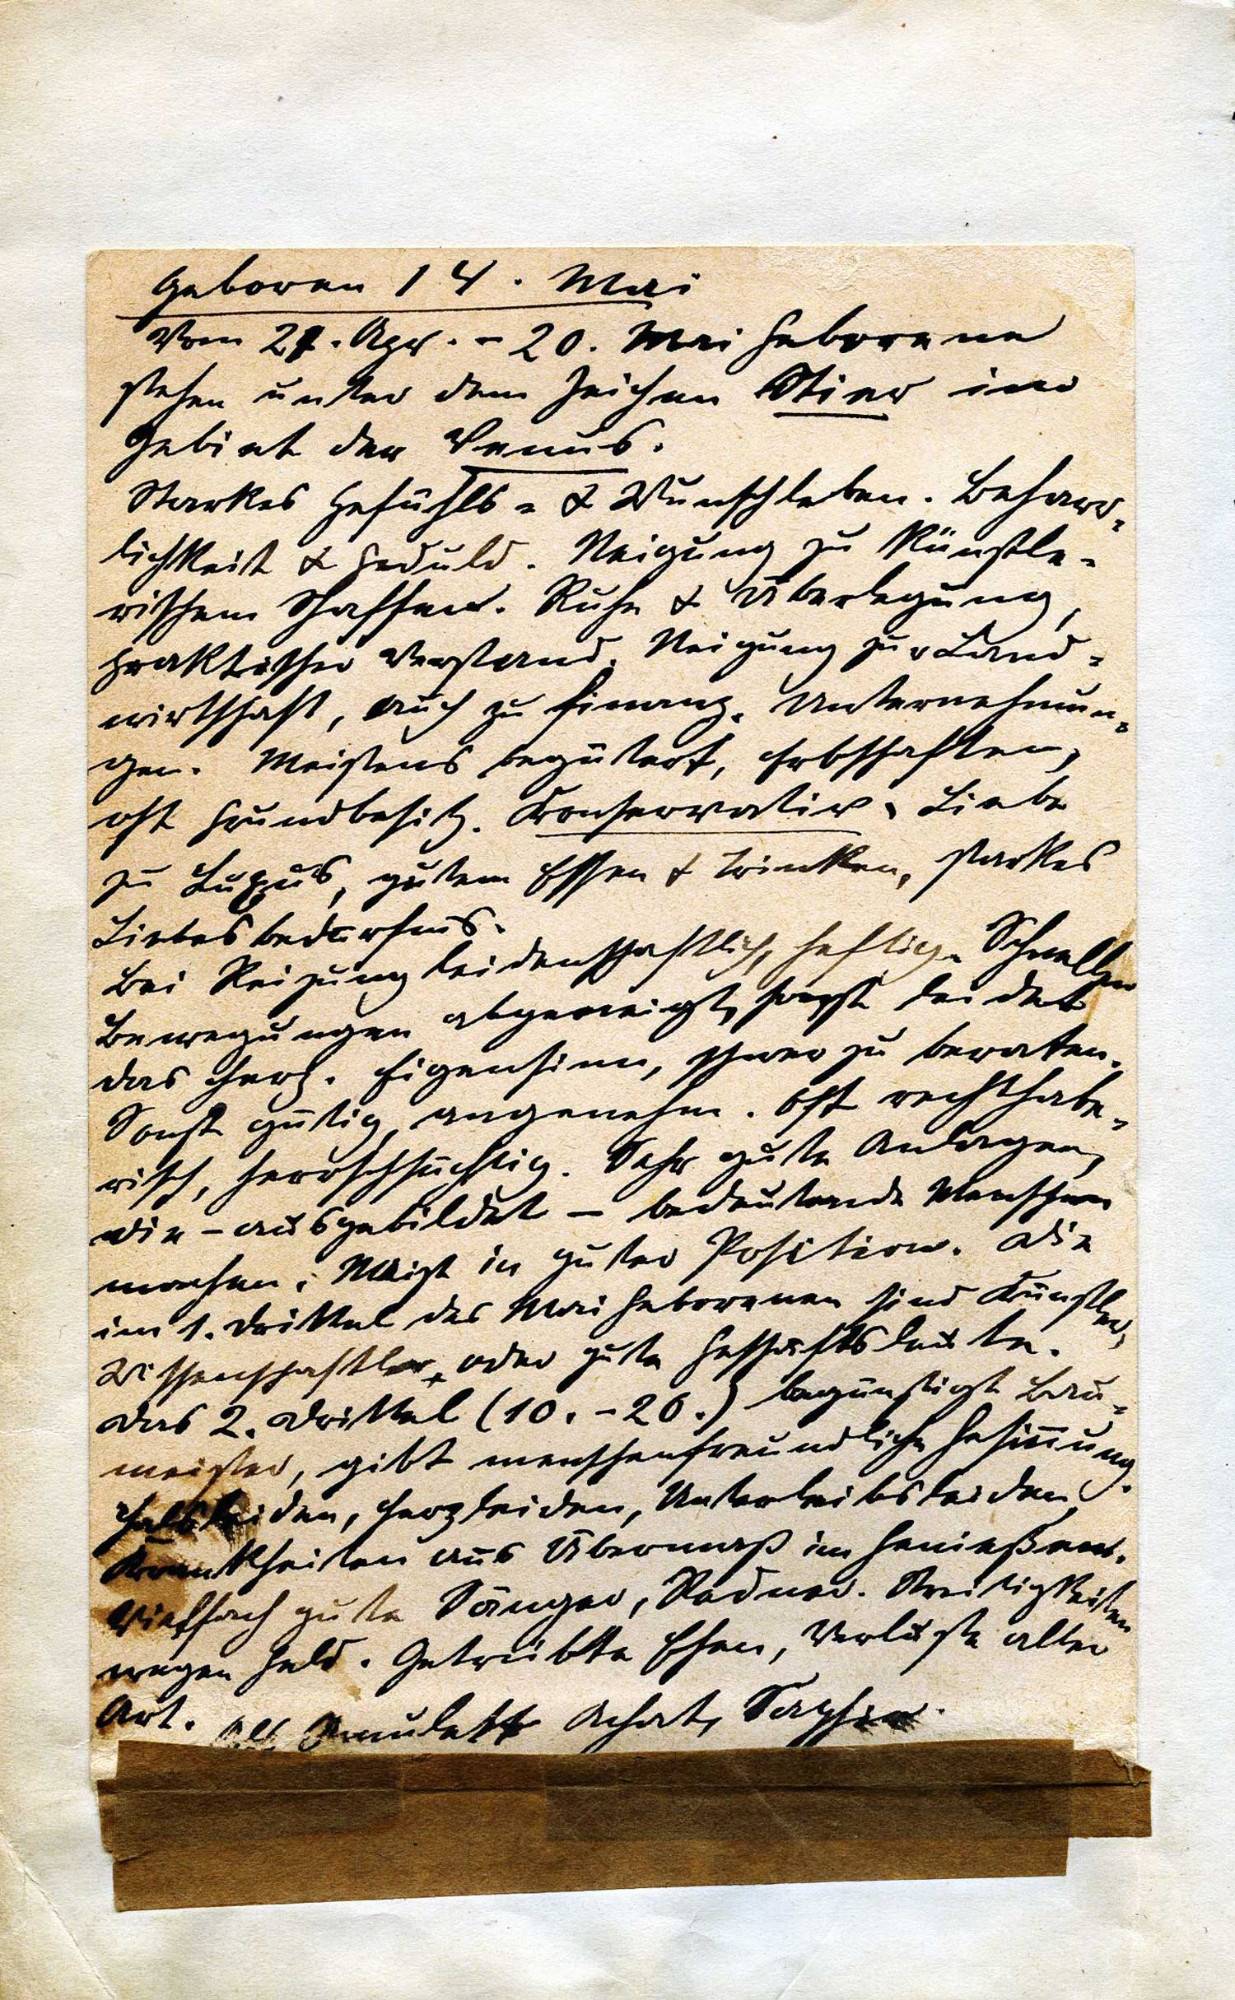 Geboren 14. Mai
Vom 21. Apr. - 20. Mai Geborene
stehen unter dem Zeichen Stier im
Gebiet der Venus.
Starkes Gefühls- & Wunschleben. Beharr-
lichkeit & Geduld. Neigung zu künstle-
rischem Schaffen. Ruhe & Überlegung,
praktischer Verstand. Neigung zur Land-
wirtschaft, auch zu finanz. Unternehmun-
gen. Meistens begütert, Erbschaften,
oft Grundbesitz. Konservativ. Liebe
zu Luxus, gutem Essen & Trinken, starkes
Liebesbedürfnis.
Bei Reizung leidenschaftlich, heftig. Schnellen
Bewegungen abgeneigt, sonst leidet
das Herz. Eigensinn, schwer zu beraten.
Sonst gütig, angenehm. Oft rechthabe-
risch, herrschsüchtig. Sehr gute Anlagen,
die - ausgebildet - bedeutende Menschen
machen. Meist in guter Position. Die
im 1. Drittel des Mai Geborenen sind Künstler,
Wissenschaftler, oder gute Geschäftsleute.
Das 2. Drittel (10. - 20.) begünstigt Bau-
meister, gibt menschenfreundliche Gesinnung.
Halsleiden, Herzleiden, Unterleibsleiden,
Krankheiten aus Übermaß im Genießen.
Vielfach gute Sänger, Redner. Streitigkeiten
wegen Geld. Getrübte Ehen, Verluste aller
Art. Als Amulett Achat, Saphir.